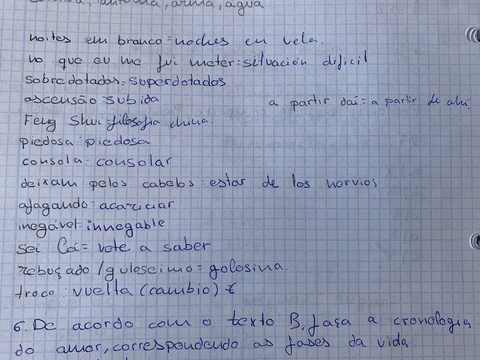 comida, lanterna, arma, água
noites em branco = noches en vela.
no que eu me fui meter = situación dificil
sobredotados = superdotados
ascensão = subida
a partir daí = a partir de ahí
Feng Shui = filosofia china.
piedosa = piedosa
consola = consolar
deixam pelos cabelos = estar de los norvios
afagando = acariciar
inegável = innegable
sei lá = vete a saber
rebuçado / guloseima = golosina.
troco = vuelta (cambio) €
6. De acordo com o texto B, faça a cronologia
do amor, correspondendo as fases da vida